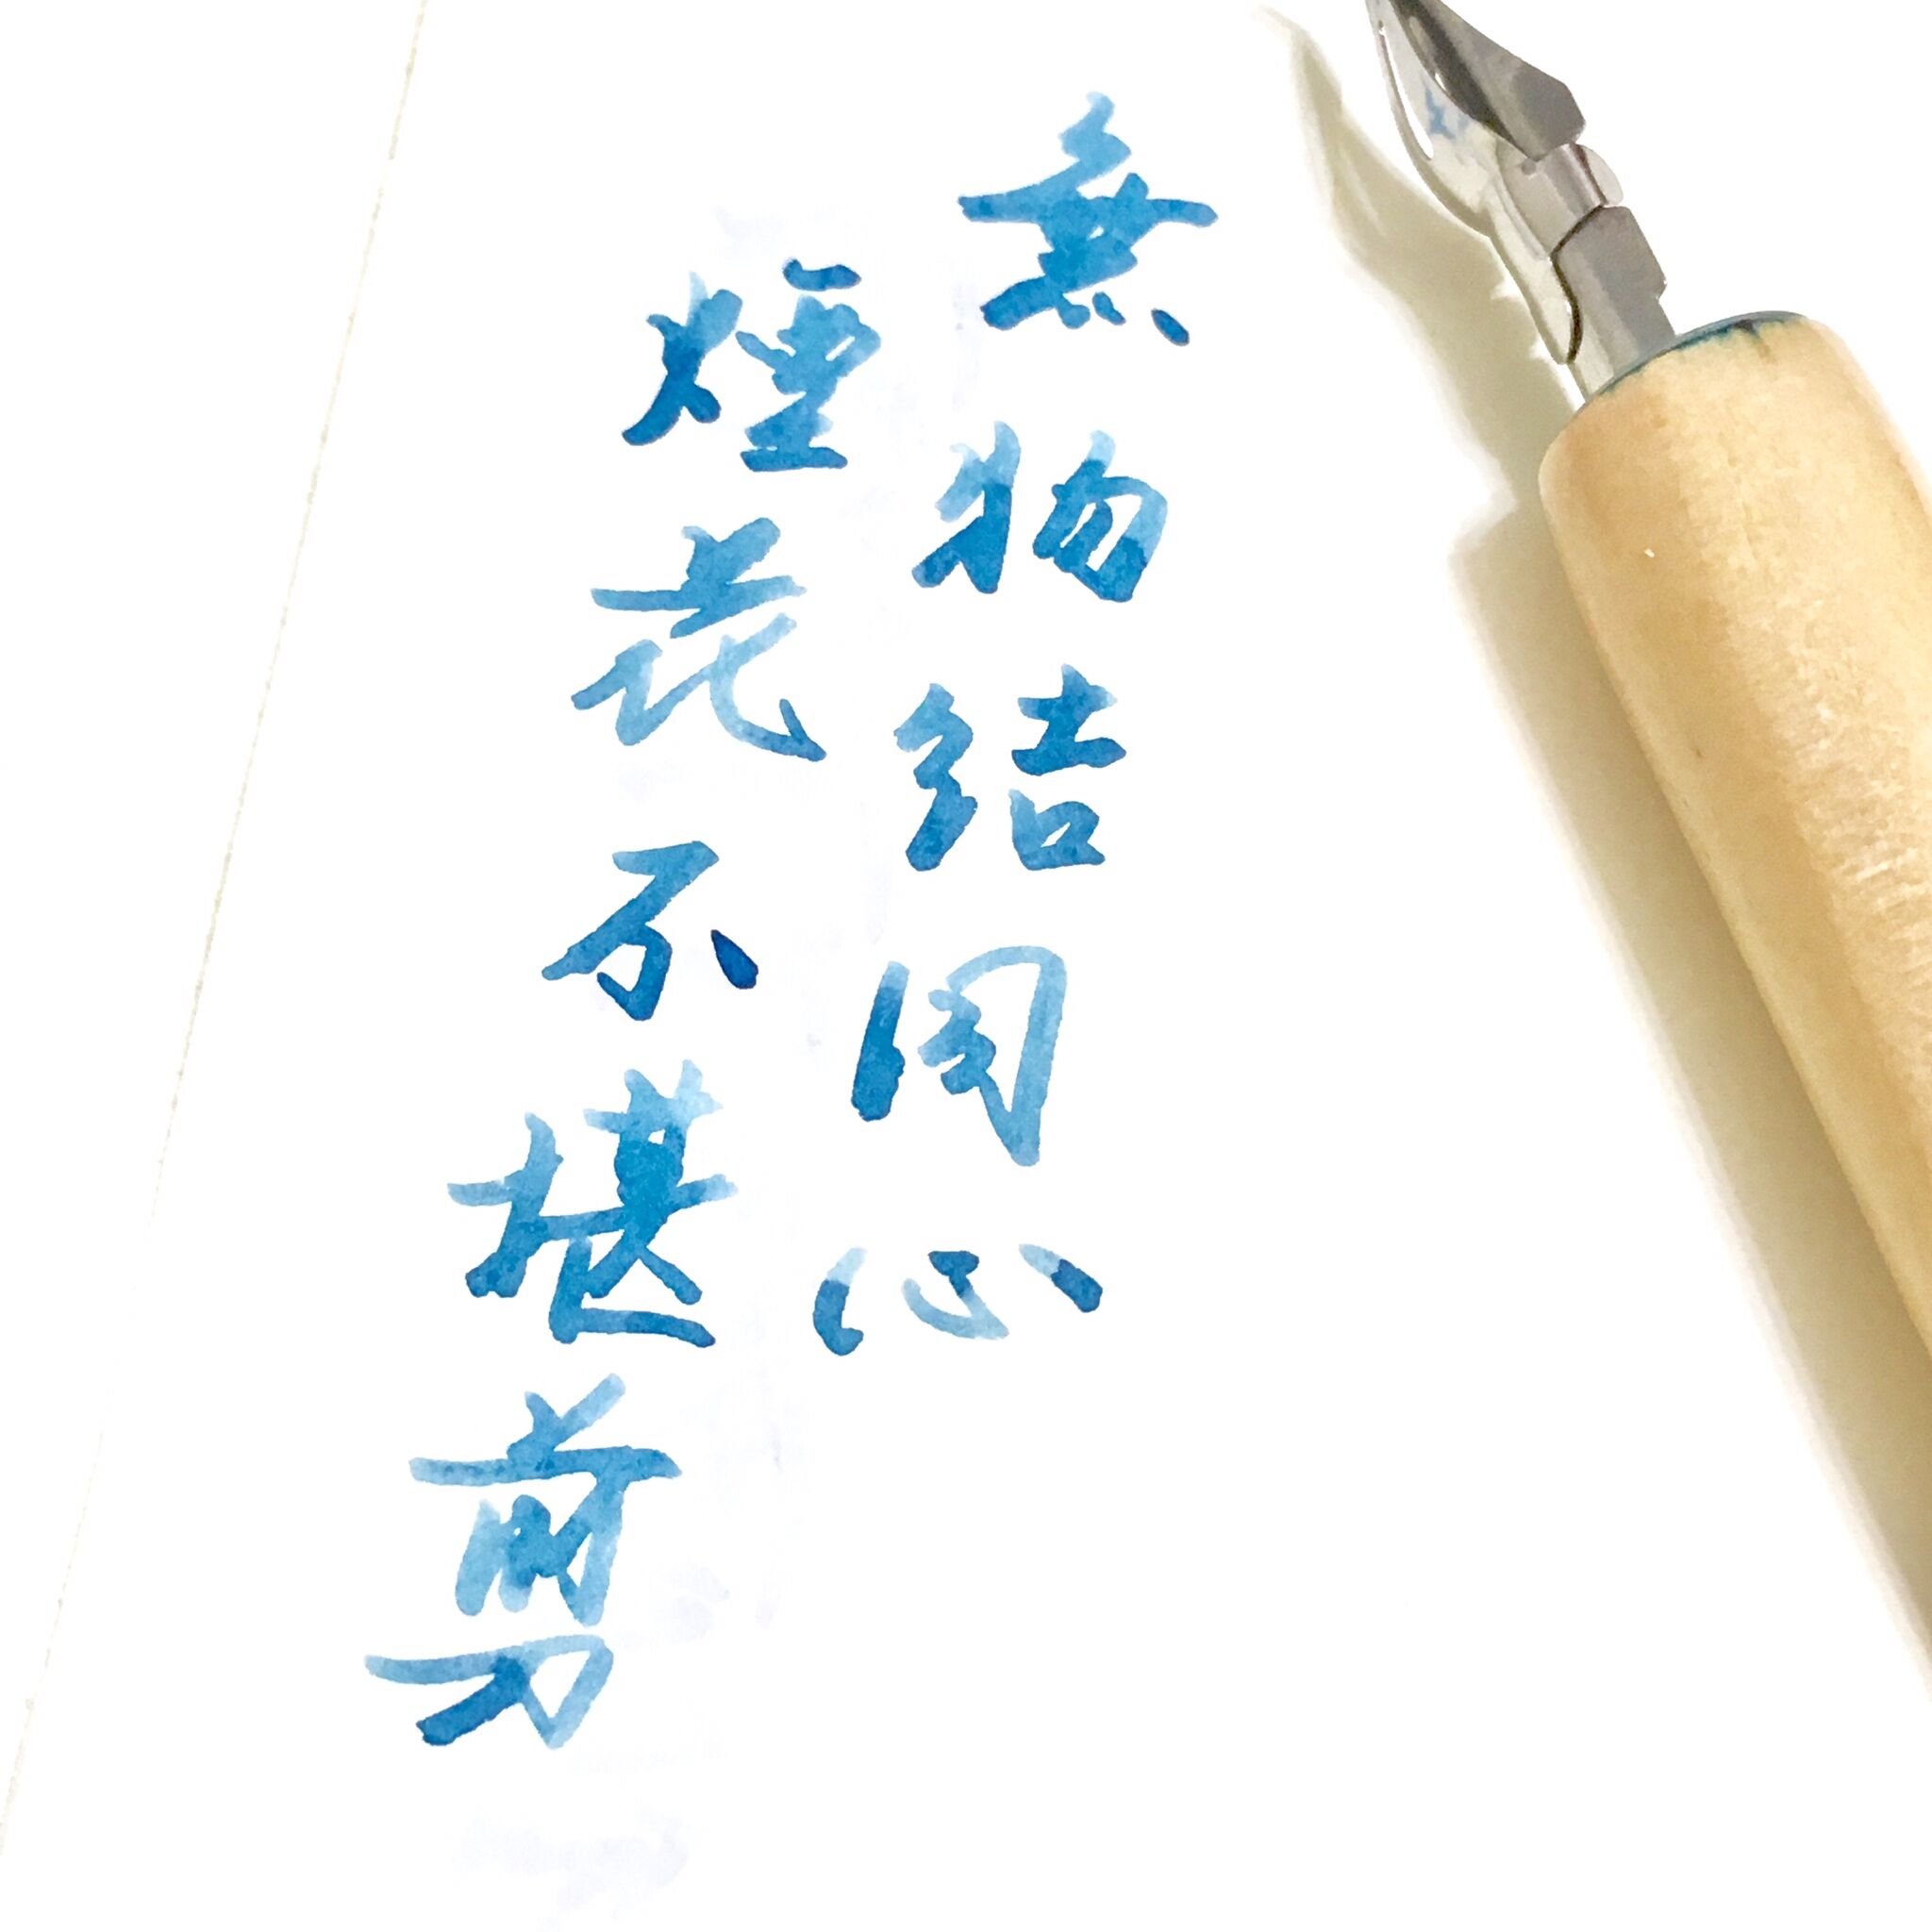 無物结同心
煙花不堪剪